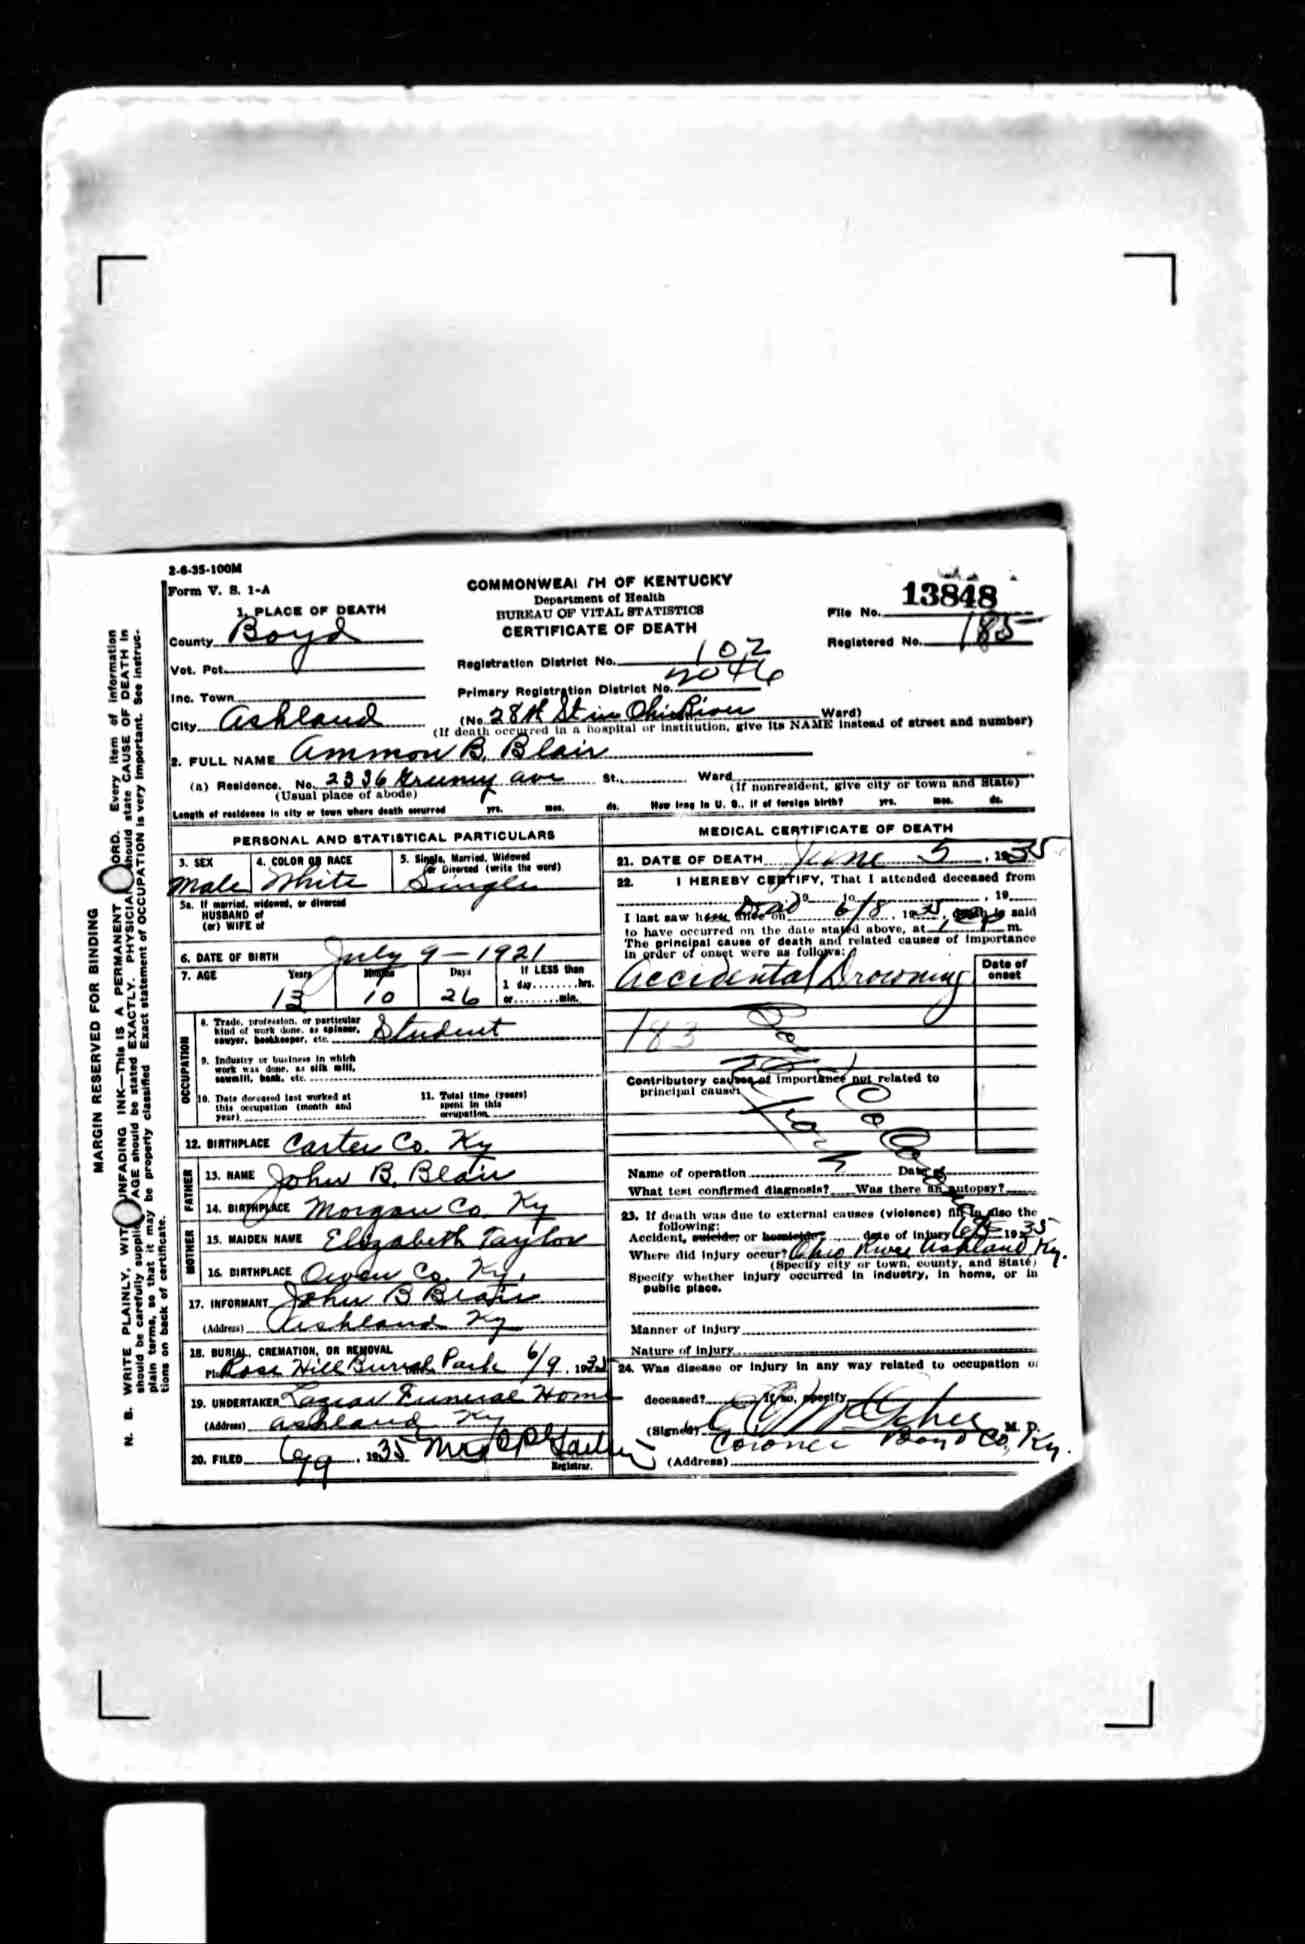 2-6-35-100M
Form V. S. 1-A
COMMONWEALTH OF KENTUCKY
Department of Health
BUREAU OF VITAL STATISTICS
CERTIFICATE OF DEATH
File No. 13848
Registered No. 185
1. PLACE OF DEATH
County Boyd
Vot. Pct.
Inc. Town
City Ashland
Registration District No. 102
Primary Registration District No. 2046
(No. 28th St in Ohio River Ward)
(If death occurred in a hospital or institution, give its NAME instead of street and number)
2. FULL NAME Ammon B. Blair
(a) Residence. No. 2336 Ave St., Ward
(Usual place of abode)
(If nonresident, give city or town and State)
Length of residence in city or town where death occurred yrs. mos. ds. How long in U. S., if of foreign birth? yrs. mos. ds.
PERSONAL AND STATISTICAL PARTICULARS
3. SEX Male
4. COLOR OR RACE White
5. Single, Married, Widowed or Divorced (write the word) Single
5a. If married, widowed, or divorced
HUSBAND of
(or) WIFE of
6. DATE OF BIRTH July 9 - 1921
7. AGE Years 13 Months 10 Days 26 If LESS than 1 day........hrs. or........min.
OCCUPATION
8. Trade, profession, or particular kind of work done, as spinner, sawyer, bookkeeper, etc. Student
9. Industry or business in which work was done, as silk mill, sawmill, bank, etc.
10. Date deceased last worked at this occupation (month and year)
11. Total time (years) spent in this occupation
12. BIRTHPLACE Carter Co. Ky
FATHER
13. NAME John B. Blair
14. BIRTHPLACE Morgan Co. Ky
MOTHER
15. MAIDEN NAME Elizabeth Taylor
16. BIRTHPLACE Owen Co. Ky.
17. INFORMANT John B Blair
(Address) Ashland Ky
18. BURIAL, CREMATION, OR REMOVAL
Place Rose Hill Burial Park 6/9, 1935
19. UNDERTAKER Lazear Funeral Home
(Address) Ashland Ky
20. FILED 6/9, 1935 Mrs
Registrar.
MEDICAL CERTIFICATE OF DEATH
21. DATE OF DEATH June 5, 1935
22. I HEREBY CERTIFY, That I attended deceased from
, 19
I last saw him Dead on 6/8, 1935, death is said
to have occurred on the date stated above, at 1 p m.
The principal cause of death and related causes of importance
in order of onset were as follows:
Date of onset
Accidental Drowning
183
Contributory causes of importance not related to
principal cause:
Name of operation Date of
What test confirmed diagnosis? Was there an autopsy?
23. If death was due to external causes (violence) fill in also the
following:
Accident, suicide, or homicide? date of injury 6/5 1935
Where did injury occur? Ohio River Ashland Ky.
(Specify city or town, county, and State)
Specify whether injury occurred in industry, in home, or in
public place.
Manner of injury
Nature of injury
24. Was disease or injury in any way related to occupation of
deceased? If so, specify
(Signed) M. D.
Coroner Boyd Co, Ky.
(Address)
MARGIN RESERVED FOR BINDING
N. B. WRITE PLAINLY, WITH UNFADING INK—This IS A PERMANENT RECORD. Every item of information
should be carefully supplied. AGE should be stated EXACTLY. PHYSICIAN should state CAUSE OF DEATH in
plain terms, so that it may be properly classified. Exact statement of OCCUPATION is very important. See instruc-
tions on back of certificate.